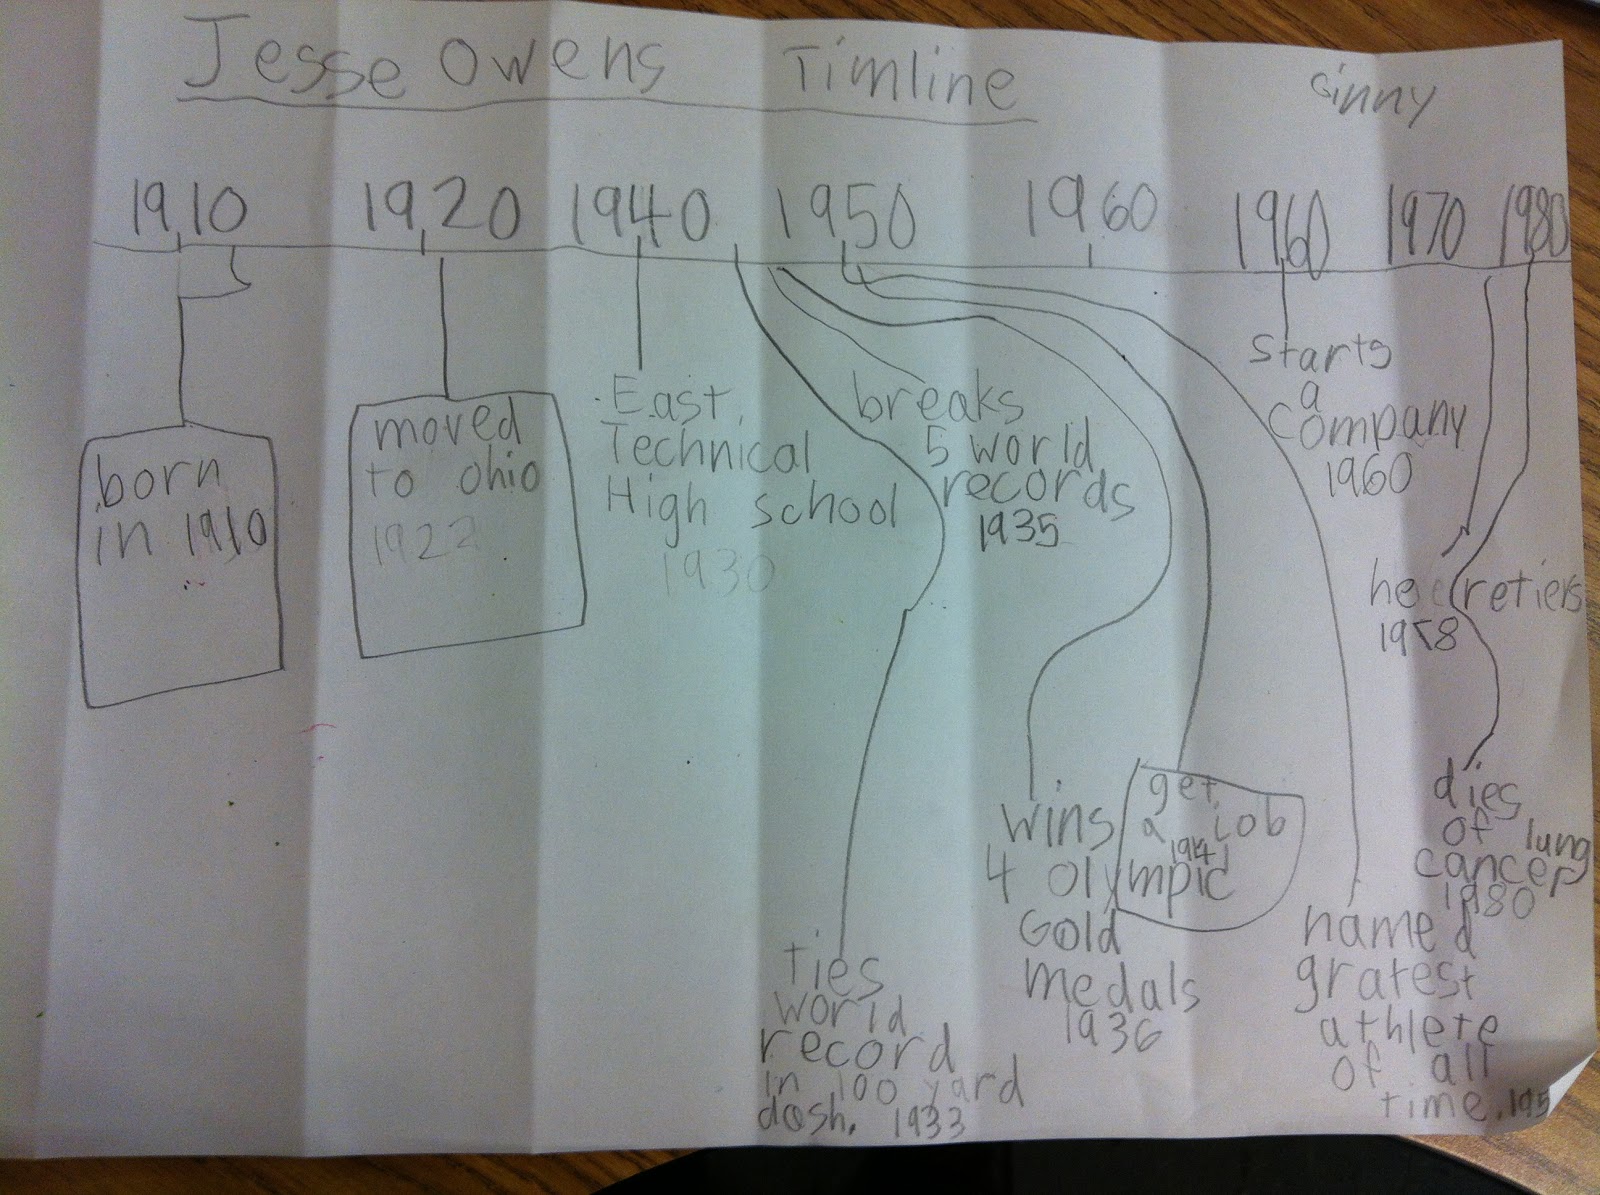 Jesse Owens Timline
Ginny
1910 1920 1940 1950 1960 1960 1970 1980
born
in 1910
moved
to ohio
1922
East
Technical
High school
1930
breaks
5 world
records
1935
starts
a
company
1960
he retiers
1978
ties
world
record
in 100 yard
dash. 1933
wins
4 olympic
Gold
medals
1936
get
a job
named
gratest
athlete
of all
time.
dies
of lung
cancer
1980